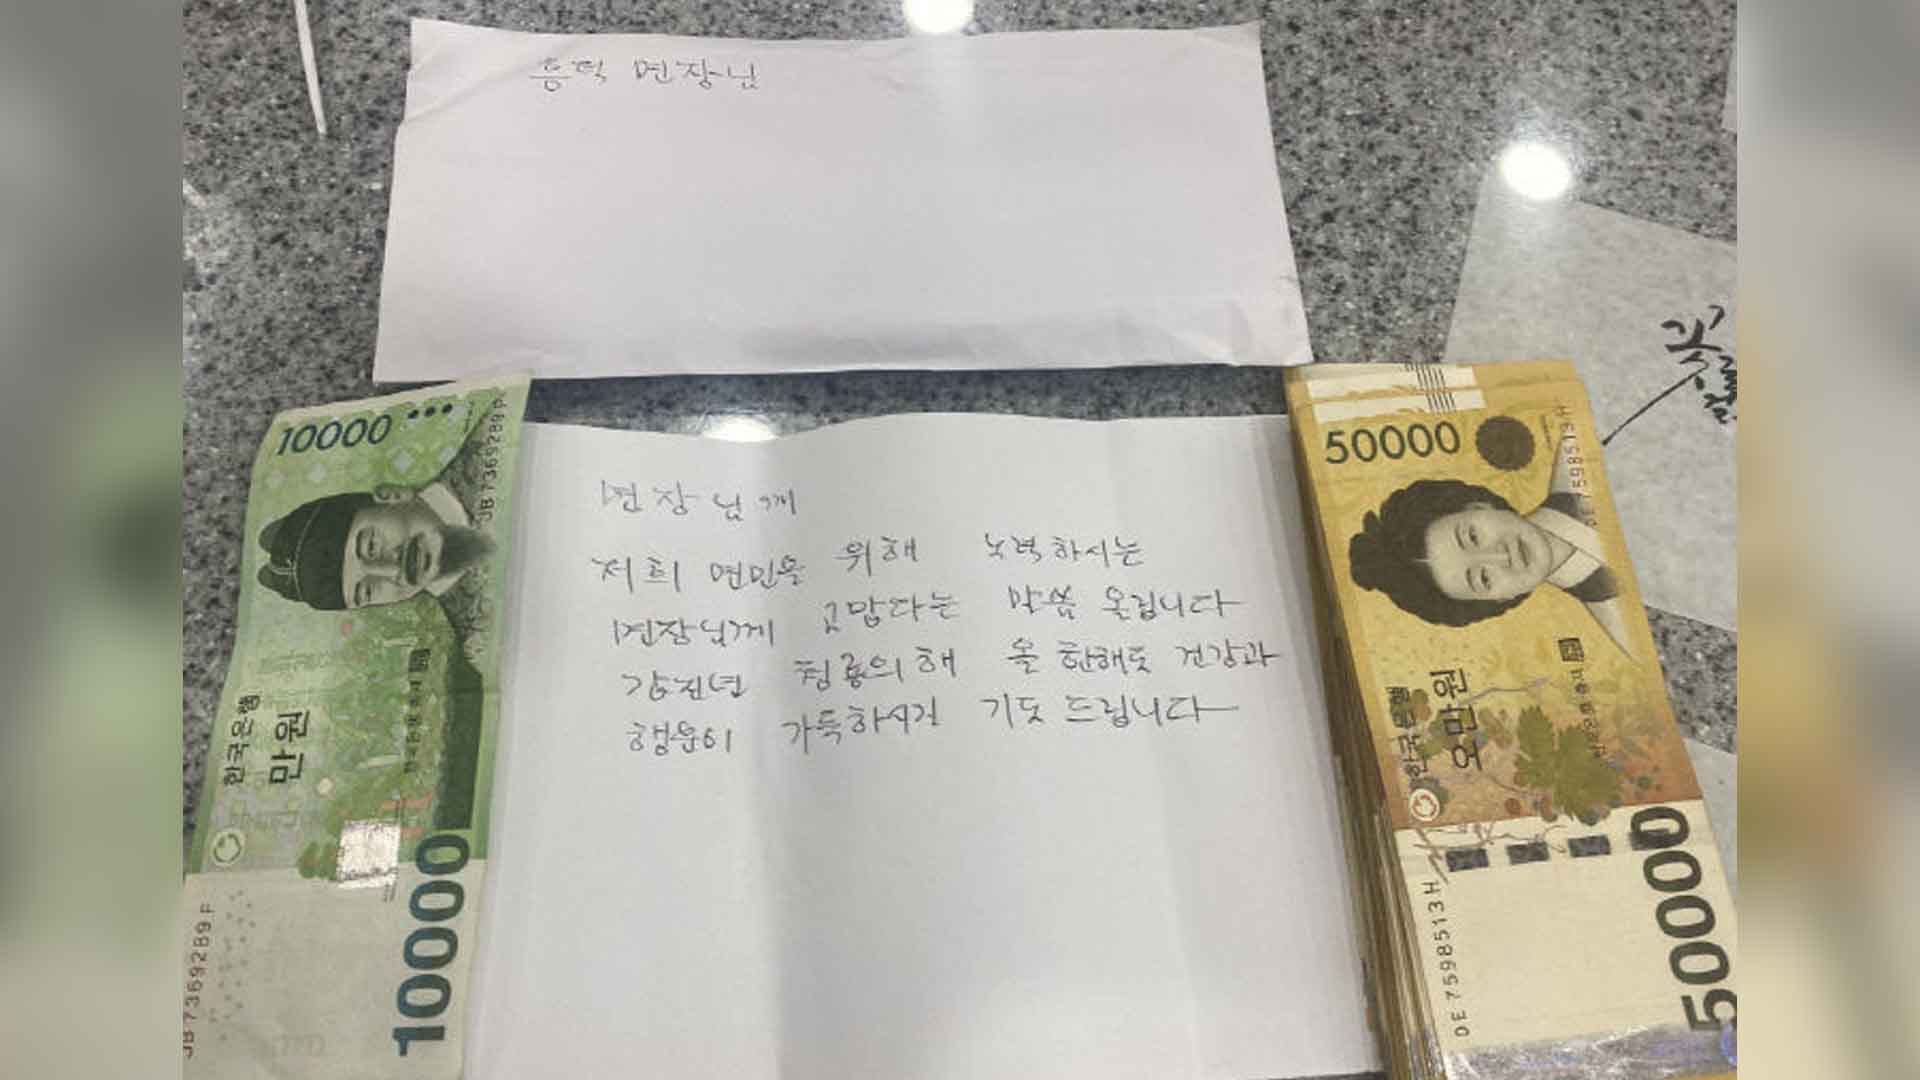 흥덕 면장님
10000
JB 7369289 P
한국은행
만원
10000
JB 7369289 P
면장님께
저희 면민을 위해 노력하시는
면장님께 고맙다는 말씀 올립니다
갑진년 청룡의해 올 한해도 건강과
행운이 가득하시길 기도 드립니다
50000
DE 7598513 H
한국은행
오만원
50000
DE 7598513 H